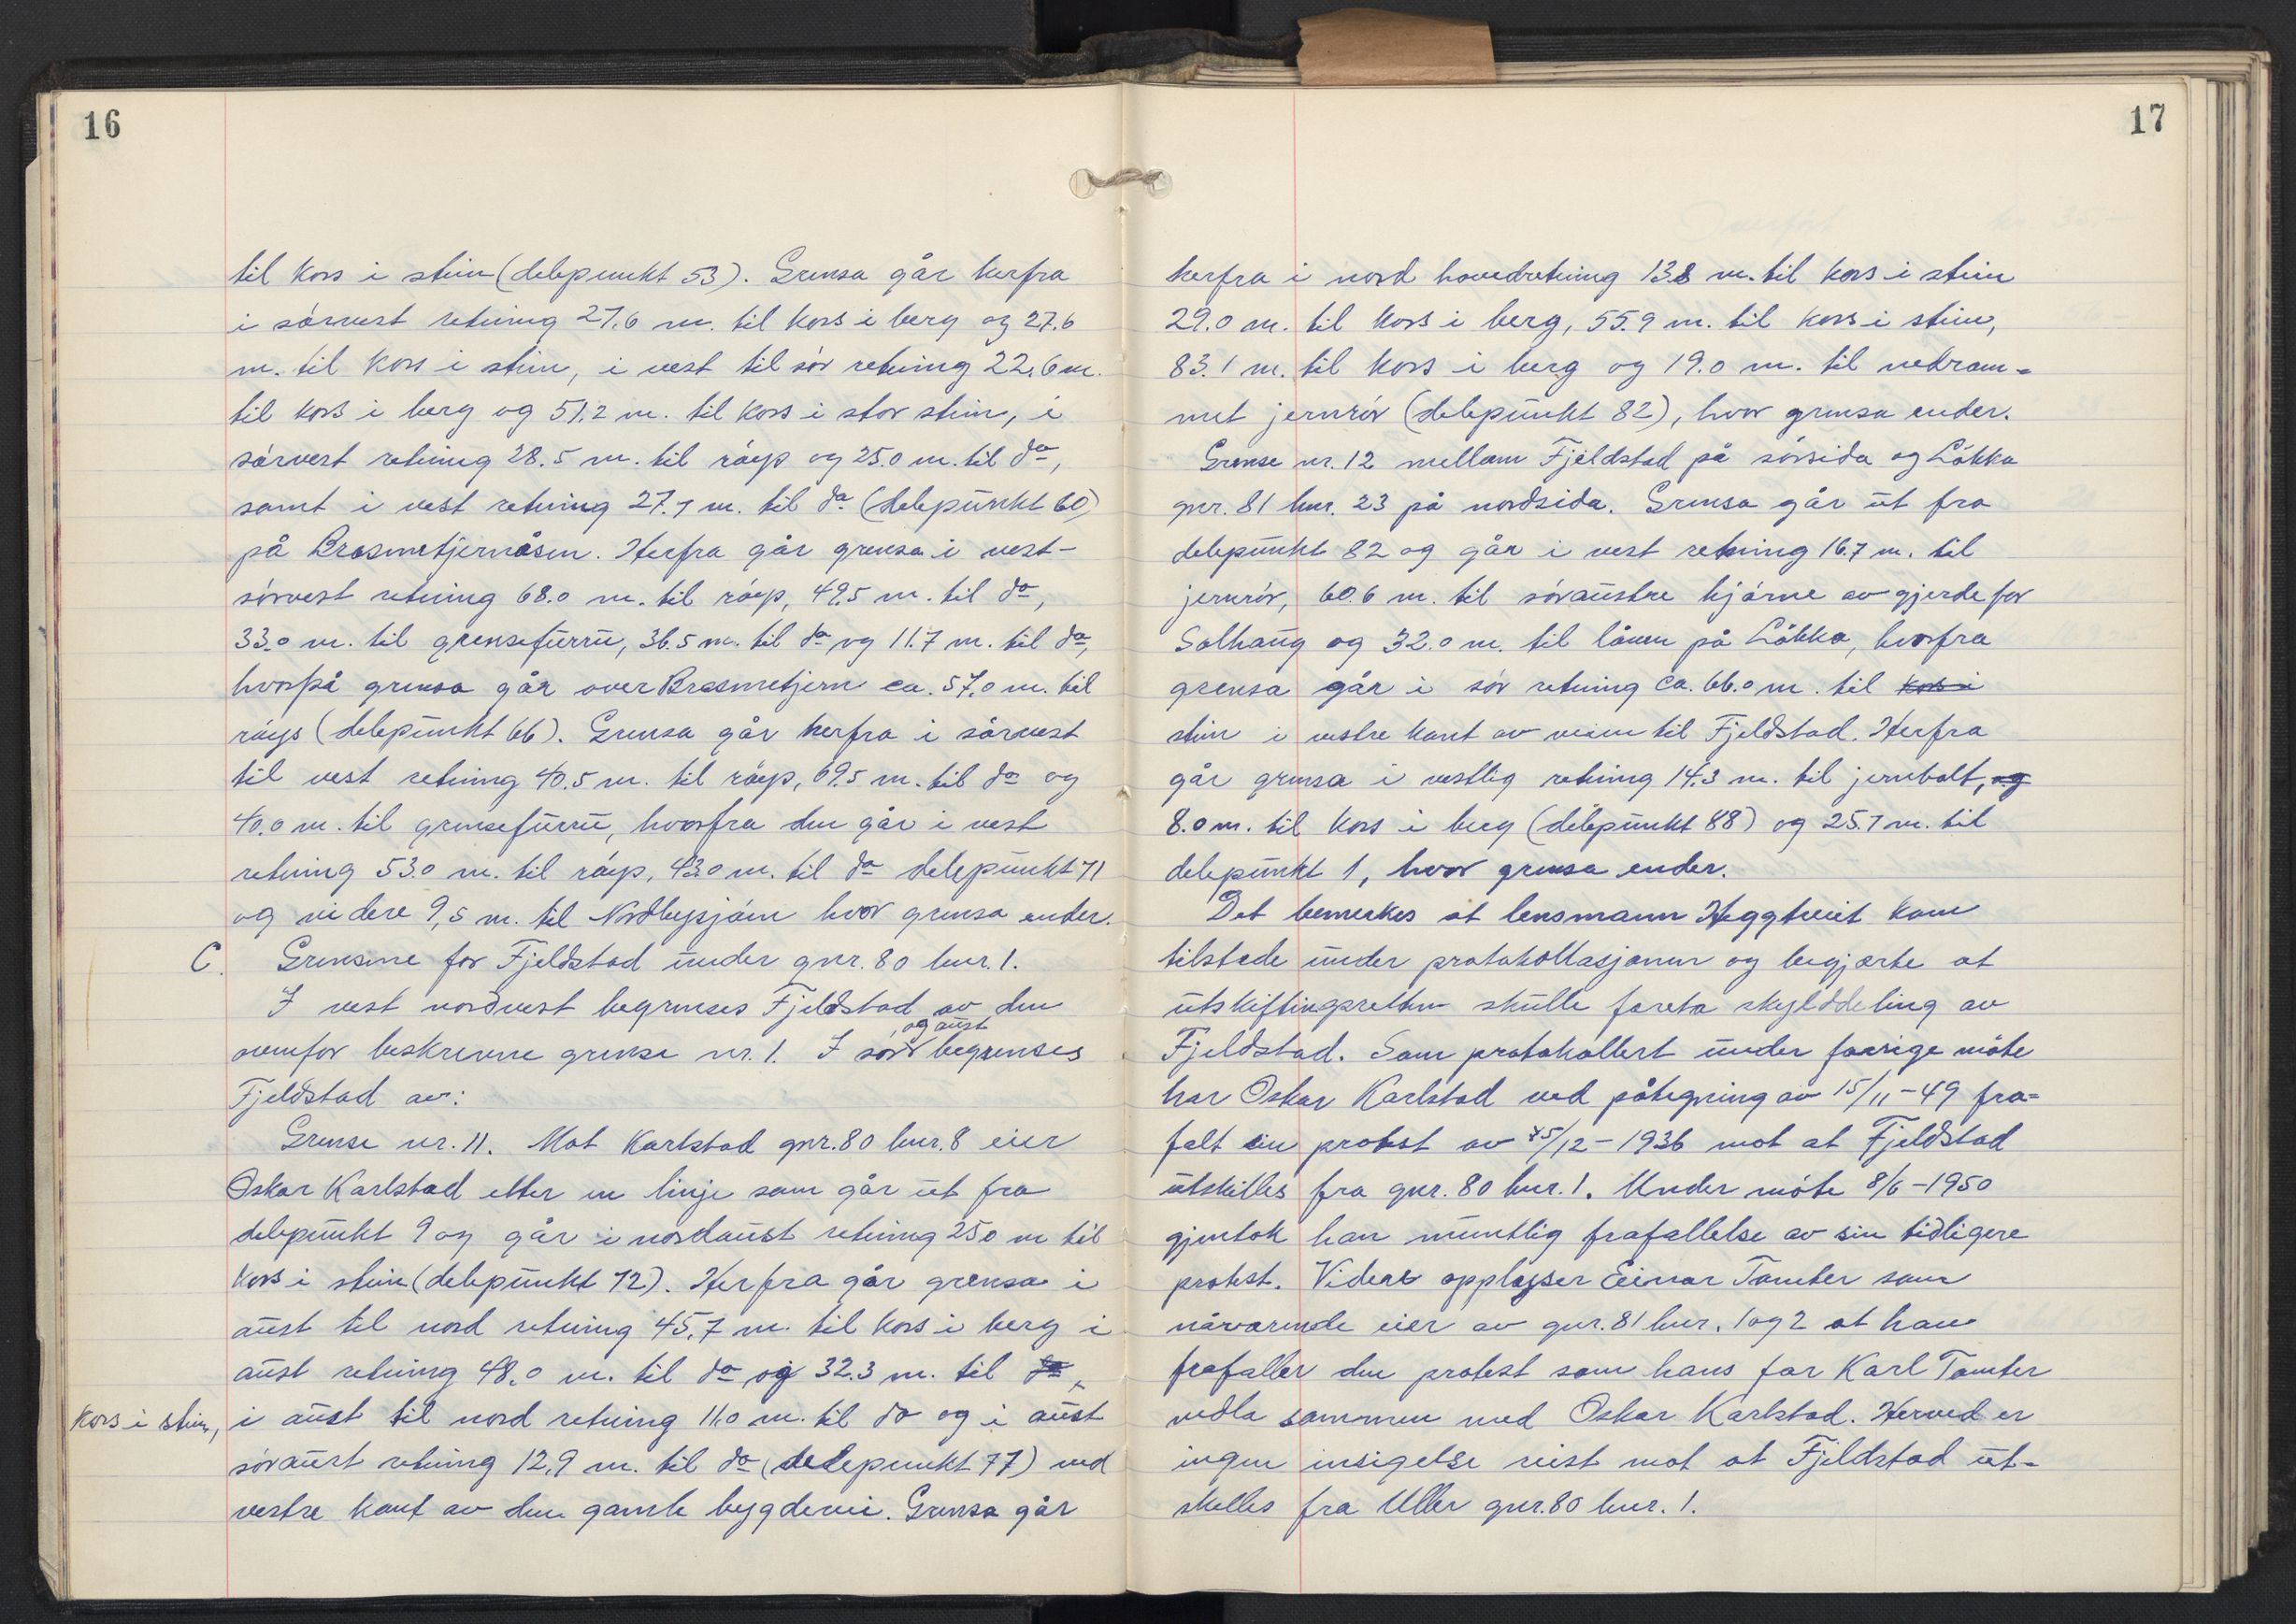 16
til kors i stein (delepunkt 53). Grensa går herfra
i sørvest retning 27.6 m. til kors i berg og 27.6
m. til kors i stein, i vest til sør retning 22.6 m.
til kors i berg og 51.2 m. til kors i stor stein, i
sørvest retning 28.5 m. til røys og 25.0 m. til do,
samt i vest retning 27.7 m. til do (delepunkt 60)
på Brasmetjernåsen. Herfra går grensa i vest-
sørvest retning 68.0 m. til røys, 49.5 m. til do,
33.0 m. til grensefurru, 36.5 m. til do og 11.7 m. til do,
hvorpå grensa går over Brasmetjern ca. 57.0 m. til
røys (delepunkt 66). Grensa går herfra i sørvest
til vest retning 40.5 m. til røys, 69.5 m. til do og
40.0 m. til grensefurru, hvorfra den går i vest
retning 53.0 m. til røys, 43.0 m. til do delepunkt 71
og videre 9,5 m. til Nordbysjøen hvor grensa ender.
C. Grensene for Fjeldstad under gnr. 80 bnr. 1.
I vest nordvest begrenses Fjeldstad av den
og aust
ovenfor beskrevne grense nr. 1. I sør begrenses
Fjeldstad av:
Grense nr. 11. Mot Karlstad gnr. 80 bnr. 8 eier
Oskar Karlstad etter en linje som går ut fra
delepunkt 9 og går i nordaust retning 25.0 m til
kors i stein (delepunkt 72). Herfra går grensa i
aust til nord retning 45,7 m. til kors i berg i
aust retning 48.0 m. til do og 32.3 m. til do
kors i stein, i aust til nord retning 11.0 m. til do og i aust
søraust retning 12.9 m. til do (delepunkt 77) ved
vestre kant av den gamle bygdevei. Grensa går
17
herfra i nord hovedretning 13.8 m. til kors i stein
29.0 m. til kors i berg, 55.9 m. til kors i stein,
83.1 m. til kors i berg og 19.0 m. til nedram-
met jernrør (delepunkt 82), hvor grensa ender.
Grense nr. 12 mellom Fjeldstad på sørsida og Løkka
gnr. 81 bnr. 23 på nordsida. Grensa går ut fra
delepunkt 82 og går i vest retning 16.7 m. til
jernrør, 60.6 m. til søraustre hjørne av gjerde for
Solhaug og 32.0 m. til låven på Løkka, hvorfra
grensa går i sør retning ca. 66.0 m. til kors i
stein i vestre kant av veien til Fjeldstad. Herfra
går grensa i vestlig retning 14.3 m. til jernbolt, og
8.0 m. til kors i berg (delepunkt 88) og 25.7 m. til
delepunkt 1, hvor grensa ender.
Det bemerkes at lensmann Heggtveit kom
tilstede under protokollasjonen og begjærte at
utskiftingsretten skulle foreta skylddeling av
Fjeldstad. Som protokollert under forrige møte
har Oskar Karlstad ved påtegning av 15/11-49 fra-
falt sin protest av 15/12-1936 mot at Fjeldstad
utskilles fra gnr. 80 bnr. 1. Under møte 8/6-1950
gjentok han muntlig frafallelse av sin tidligere
protest. Videre opplyser Einar Tomter som
nåværende eier av gnr. 81 bnr. 1 og 2 at han
frafaller den protest som hans far Karl Tomter
nedla sammen med Oskar Karlstad. Herved er
ingen insigelse reist mot at Fjeldstad ut-
skilles fra Uller gnr. 80 bnr. 1.